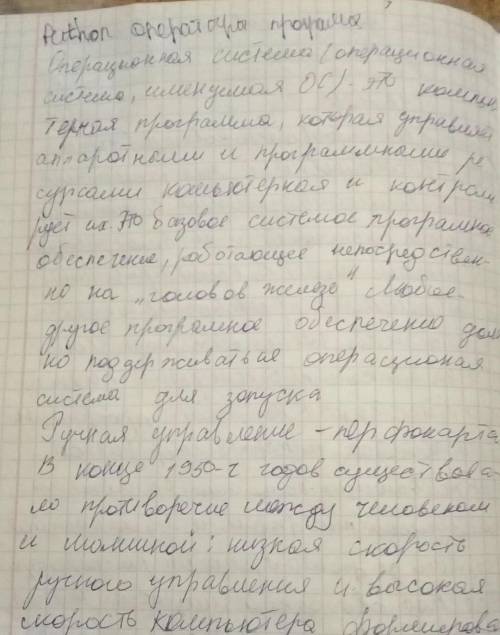 Python операторы програма
Операционная система (операционная
система, именуемая ОС) - это компью
терная программа, которая управляет
аппаратными и программными ре
сурсами компьютерная и контроли
рует их. Это базовое системое програмное
обеспечение, работающее непосредствен-
но на "головов железо" Любое
другое програмное обеспечению дол
но поддерживатьая операционая
система для запуска
Ручная управление - перфокарта
В конце 1950-г годов существова
ло противоречие между человеком
и машиной: низкая скорость
ручного управления и высокая
скорость компьютера